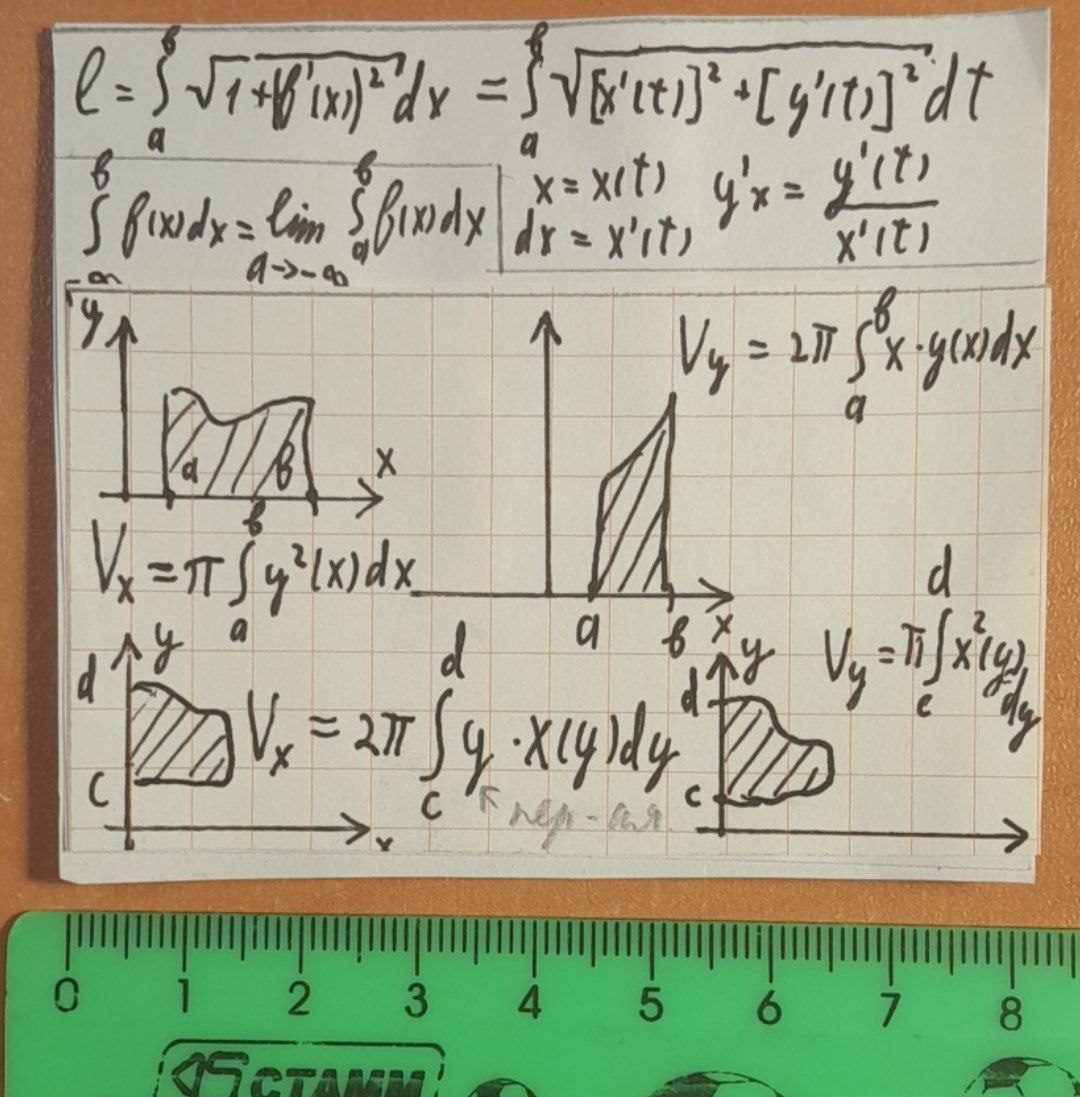 l = ∫ₐᵇ √(1+(f'(x))²) dx = ∫ₐᵇ √([x'(t)]² + [y'(t)]²) dt
∫₋∞ᵇ f(x)dx = lim ∫ₐᵇ f(x)dx
a→-∞
x = x(t)
dx = x'(t)
y'x = y'(t)/x'(t)
y
a b x
Vₓ = π ∫ₐᵇ y²(x)dx
V_y = 2π ∫ₐᵇ x·y(x)dx
a b x
d y
c
x
Vₓ = 2π ∫_c^d y·x(y)dy
y
d
c
V_y = π ∫_c^d x²(y)dy
0 1 2 3 4 5 6 7 8
СТАММ